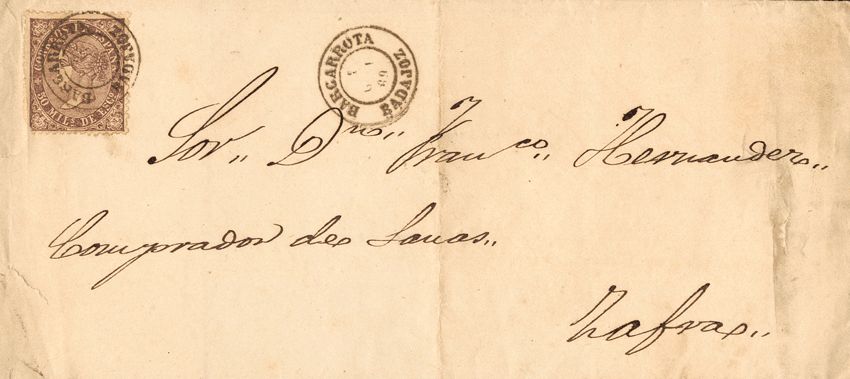 CORREOS ESPAÑA
50 MILS. DE ESCO
BARCARROTA BADAJOZ
BARCARROTA
69
BADAJOZ
Sor. Dn. Franco. Hernandez
Comprador de Lanas
Zafra